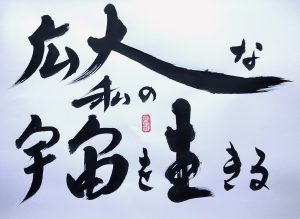 広大な
私の
宇宙を生きる